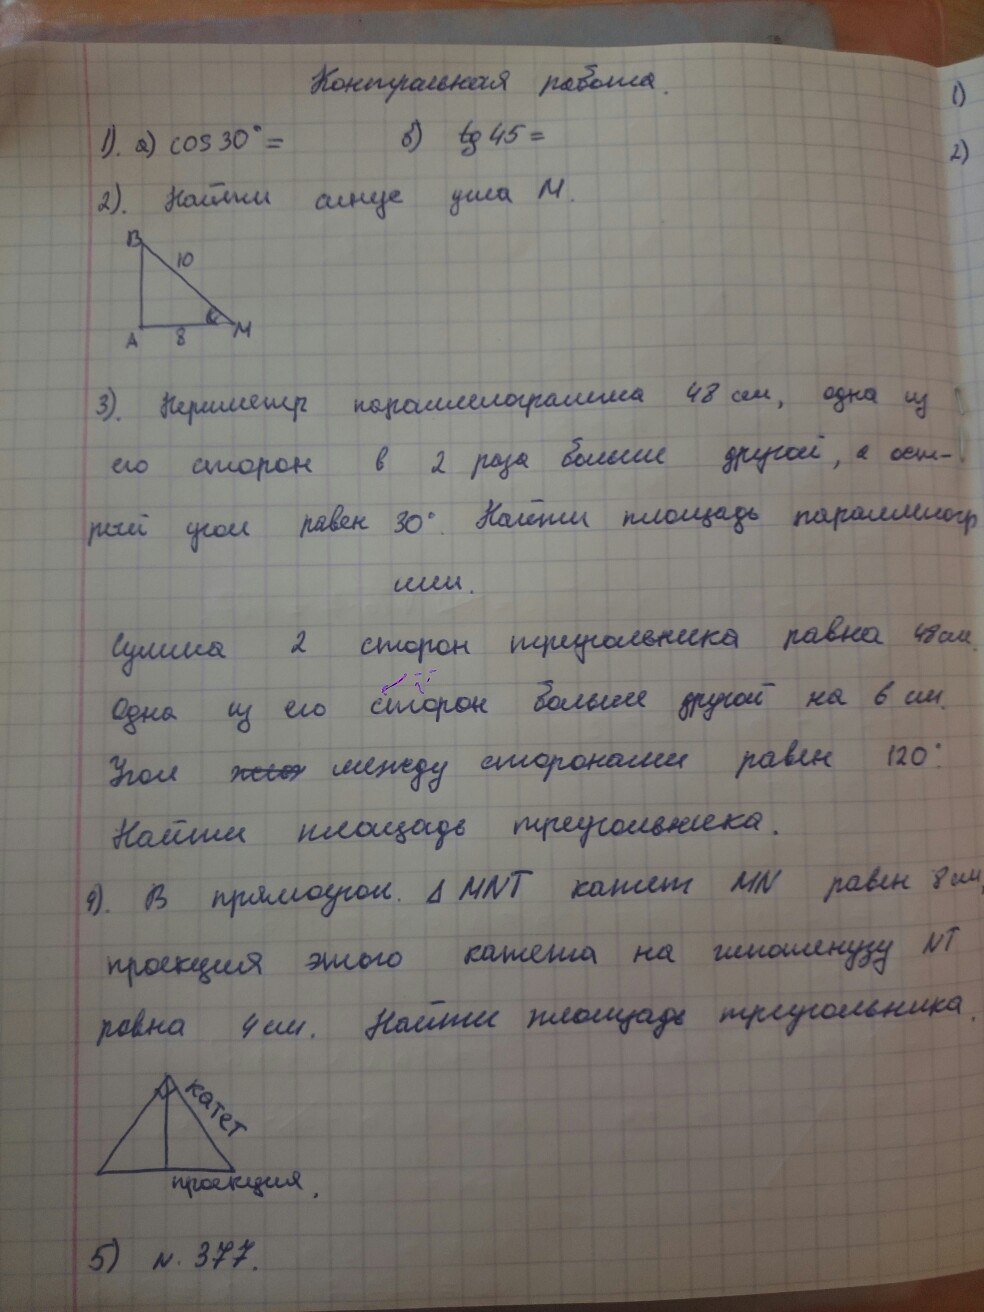 Контрольная работа.
1)
1). а) cos 30° =   б) tg 45 =
2)
2). Найти синус угла М.
В
10
А 8 М
3). Периметр параллелограмма 48 см, одна из
его сторон в 2 раза больше другой, а ост-
рый угол равен 30°. Найти площадь параллелогр
мм.
Сумма 2 сторон треугольника равна 48 см.
Одна из его сторон больше другой на 6 см.
Угол между сторонами равен 120°.
Найти площадь треугольника.
4). В прямоугол. Δ MNT катет MN равен 8 см,
проекция этого катета на гипотенузу NT
равна 4 см. Найти площадь треугольника.
катет
проекция.
5) N. 377.